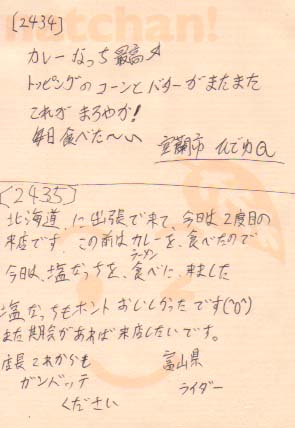 [2434]
カレーなっち最高
トッピングのコーンとバターがまたまた
これが まろやか!
毎日食べた〜〜い
室蘭市 ひでゆ
[2435]
北海道に出張で来て、今日は2度目の
来店です。この前はカレーを食べたので
ラーメン
今日は、塩なっちを、食べに来ました
塩なっちもホントおいしかったです(^o^)
また機会があれば来店したいです。
店長これからも 富山県
ガンバッテ ライダー
ください